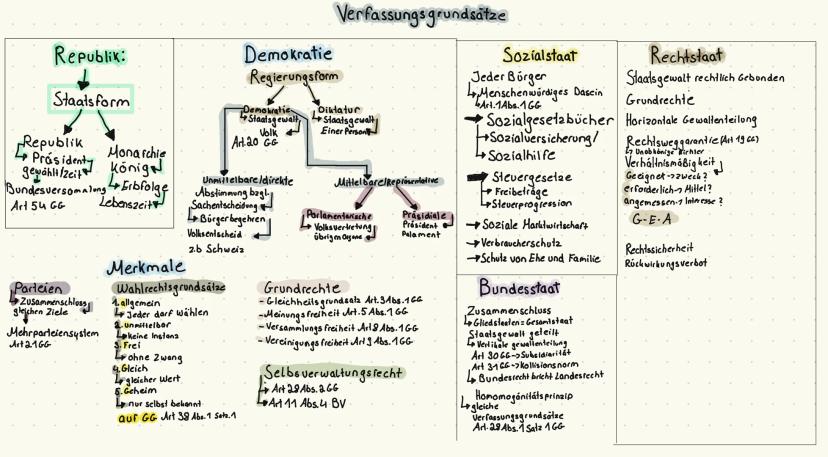 Verfassungsgrundsätze
Republik:
Staatsform
Republik
Präsident
gewählt/zeit
Bundesversammlung
Art 54 GG
Monarchie
König
Erbfolge
Lebenszeit
Demokratie
Regierungsform
Demokratie
Staatsgewalt
Volk
Art.20 GG
Diktatur
Staatsgewalt
Einer Person
Unmittelbare/direkte
Abstimmung bzgl.
Sachentscheidung
Bürgerbegehren
Volksentscheid
zb Schweiz
Mittelbare/Repräsentative
Parlamentarische
Volksvertretung
übrigen Organe
Präsidiale
Präsident
Palament
Merkmale
Parteien
Zusammenschluss
gleichen Ziele
Mehrparteiensystem
Art 21 GG
Wahlrechtsgrundsätze
1. allgemein
Jeder darf Wählen
2. unmittelbar
keine Instanz
3. Frei
ohne Zwang
4. Gleich
gleicher Wert
5. Geheim
nur selbst bekannt
auf GG Art 38 Abs.1 Satz.1
Grundrechte
- Gleichheitsgrundsatz Art.3 Abs.1 GG
- Meinungsfreiheit Art.5 Abs.1 GG
- Versammlungsfreiheit Art.8 Abs.1 GG
- Vereinigungsfreiheit Art 9 Abs.1 GG
Selbsverwaltungsrecht
Art 28 Abs.2 GG
Art 11 Abs.4 BV
Sozialstaat
Jeder Bürger
Menschenwürdiges Dasein
Art.1 Abs.1 GG
Sozialgesetzbücher
Sozialversicherung/
Sozialhilfe
Steuergesetze
Freibeträge
Steuerprogression
Soziale Marktwirtschaft
Verbraucherschutz
Schutz von Ehe und Familie
Bundesstaat
Zusammenschluss
Gliedstaaten=Gesamtstaat
Staatsgewalt geteilt
Vertikale gewaltenteilung
Art 30 GG→Subsidiarität
Art 31 GG→Kollisionsnorm
Bundesrecht bricht Landesrecht
Homomogänitätsprinzip
gleiche
Verfassungsgrundsätze
Art.28 Abs.1 Satz 1 GG
Rechtstaat
Staatsgewalt rechtlich Gebunden
Grundrechte
Horizontale Gewaltenteilung
Rechtsweggarantie (Art 19 GG)
Unabhängige Richter
Verhältnismäßigkeit
Geeignet→zweck?
erforderlich→Mittel?
angemessen→Interesse?
G-E-A
Rechtssicherheit
Rückwirkungsverbot